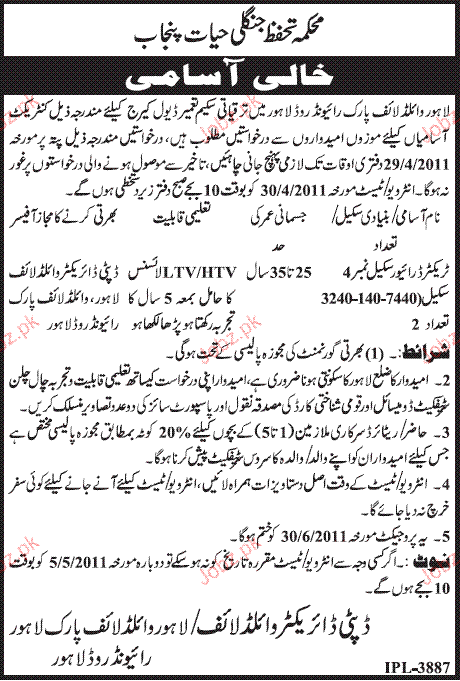 محکمہ تحفظ جنگلی حیات پنجاب
خالی آسامی
لاہور وائلڈ لائف پارک رائیونڈ روڈ لاہور میں ترقیاتی سکیم تعمیر ڈیول کیرج کیلئے مندرجہ ذیل کنٹریکٹ
آسامیاں کیلئے موزوں امیدواروں سے درخواستیں مطلوب ہیں، درخواستیں مندرجہ ذیل پتہ پر مورخہ
29/4/2011 دفتری اوقات تک لازمی پہنچ جانی چاہئیں، تاخیر سے موصول ہونے والی درخواستوں پر غور
نہ ہوگا۔ انٹرویو/ٹیسٹ مورخہ 30/4/2011 کو بوقت 10 بجے صبح دفتر زیر دستخطی ہوں گے۔
نام آسامی/بنیادی سکیل/ جسمانی عمر کی تعلیمی قابلیت بھرتی کرنے کا مجاز آفیسر
تعداد حد
ٹریکٹر ڈرائیور سکیل نمبر 4 25 تا 35 سال LTV/HTV لائسنس ڈپٹی ڈائریکٹر وائلڈ لائف
سکیل (7440-140-3240) کا حامل بمعہ 5 سال کا لاہور، وائلڈ لائف پارک
تعداد 2 تجربہ رکھتا ہو پڑھا لکھا ہو رائیونڈ روڈ لاہور
شرائط:۔ (1) بھرتی گورنمنٹ کی مجوزہ پالیسی کے تحت ہوگی۔
2۔ امیدوار کا ضلع لاہور کا سکونتی ہونا ضروری ہے، امیدوار اپنی درخواست کیساتھ تعلیمی قابلیت و تجربہ چال چلن
سرٹیفکیٹ ڈومیسائل اور قومی شناختی کارڈ کی مصدقہ نقول اور پاسپورٹ سائز کی دو عدد تصاویر منسلک کریں۔
3۔ حاضر/ریٹائرڈ سرکاری ملازمین (1 تا 5) کے بچوں کیلئے 20% کوٹہ بمطابق مجوزہ پالیسی مختص ہے
جس کیلئے امیدواران کو اپنے والد/والدہ کا سروس سرٹیفکیٹ پیش کرنا ہوگا۔
4۔ انٹرویو/ٹیسٹ کے وقت اصل دستاویزات ہمراہ لائیں، انٹرویو/ٹیسٹ کیلئے آنے جانے کیلئے کوئی سفر
خرچ نہ دیا جائے گا۔
5۔ یہ پروجیکٹ مورخہ 30/6/2011 کو ختم ہوگا۔
نوٹ:۔ اگر کسی وجہ سے انٹرویو/ٹیسٹ مقررہ تاریخ کو نہ ہو سکے تو دوبارہ مورخہ 5/5/2011 کو بوقت
10 بجے ہوں گے۔
ڈپٹی ڈائریکٹر وائلڈ لائف/لاہور وائلڈ لائف پارک لاہور
رائیونڈ روڈ لاہور
IPL-3887
Jobz.pk